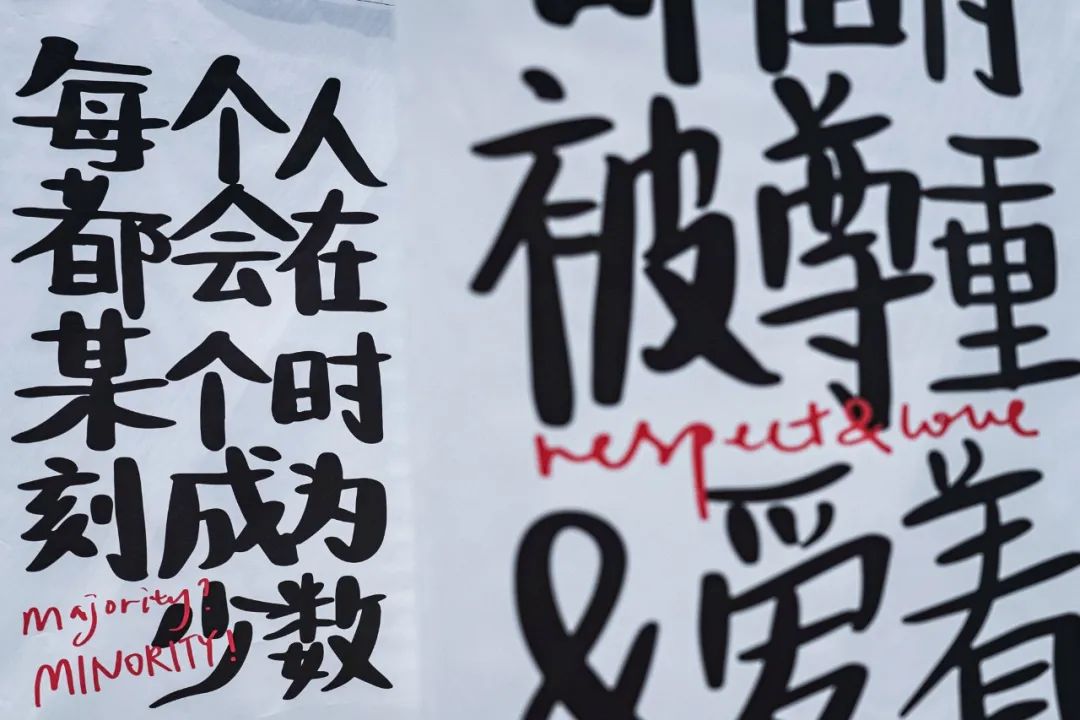 每个人
都会在
某个时
刻成为
少数
majority?
MINORITY!
被尊重
respect & love
&爱着